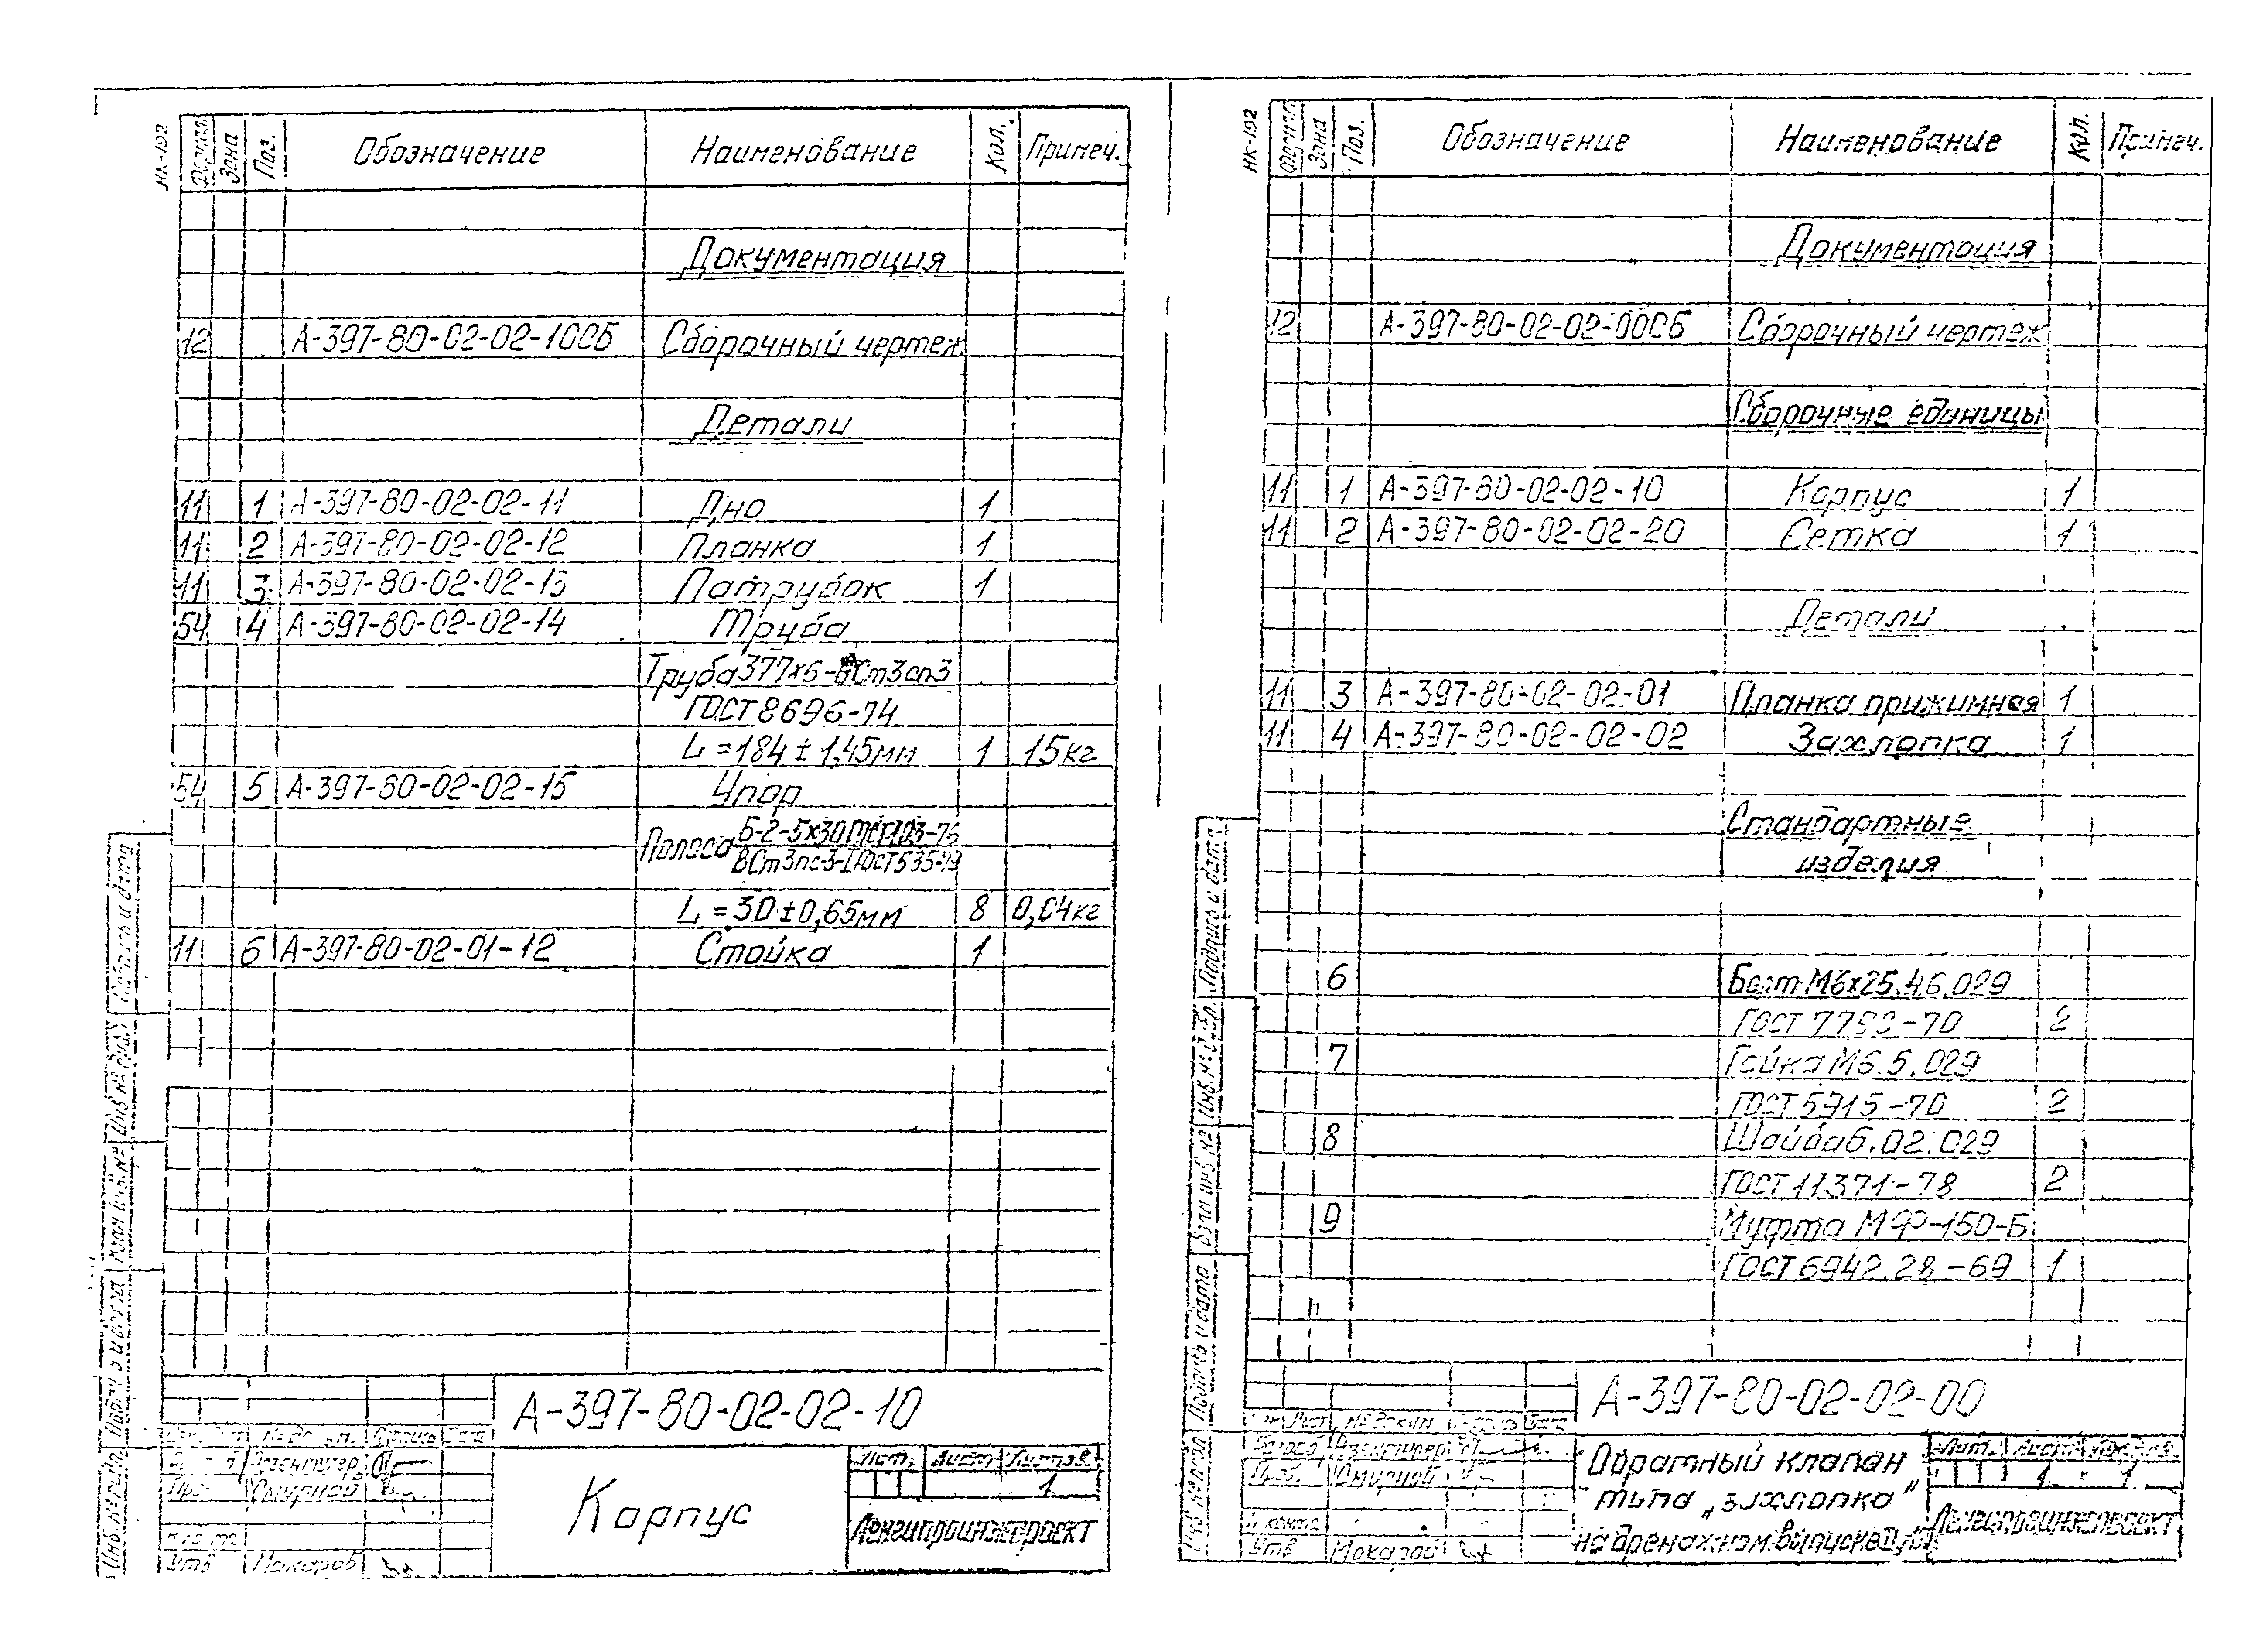 НК-192
Формат Зона Поз. Обозначение Наименование Кол. Примеч.
Документация
12 А-397-80-02-02-10СБ Сборочный чертеж
Детали
11 1 А-397-80-02-02-11 Дно 1
11 2 А-397-80-02-02-12 Планка 1
11 3 А-397-80-02-02-13 Патрубок 1
54 4 А-397-80-02-02-14 Труба
Труба 377х6-ВСт3сп3
ГОСТ 8696-74
L=184±1,45мм 1 15кг
54 5 А-397-80-02-02-15 Упор
Полоса Б-2-5х30 ГОСТ103-76
ВСт3пс3-I ГОСТ535-79
L=30±0,65мм 8 0,04кг
11 6 А-397-80-02-01-12 Стойка 1
А-397-80-02-02-10
Лит. Лист Листов
1
Корпус
Ленгипроинжпроект
Утв Макаров
НК-192
Формат Зона Поз. Обозначение Наименование Кол. Примеч.
Документация
12 А-397-80-02-02-00СБ Сборочный чертеж
Сборочные единицы
11 1 А-397-80-02-02-10 Корпус 1
11 2 А-397-80-02-02-20 Сетка 1
Детали
11 3 А-397-80-02-02-01 Планка прижимная 1
11 4 А-397-80-02-02-02 Захлопка 1
Стандартные
изделия
6 Болт М6х25.46.029
ГОСТ 7798-70 2
7 Гайка М6.5.029
ГОСТ 5915-70 2
8 Шайба 6.02.029
ГОСТ 11371-78 2
9 Муфта МФ-150-Б
ГОСТ 6942.28-69 1
А-397-80-02-02-00
Лит. Лист Листов
1 1
Обратный клапан
типа „захлопка"
на дренажном выпуске
Ленгипроинжпроект
Утв Макаров